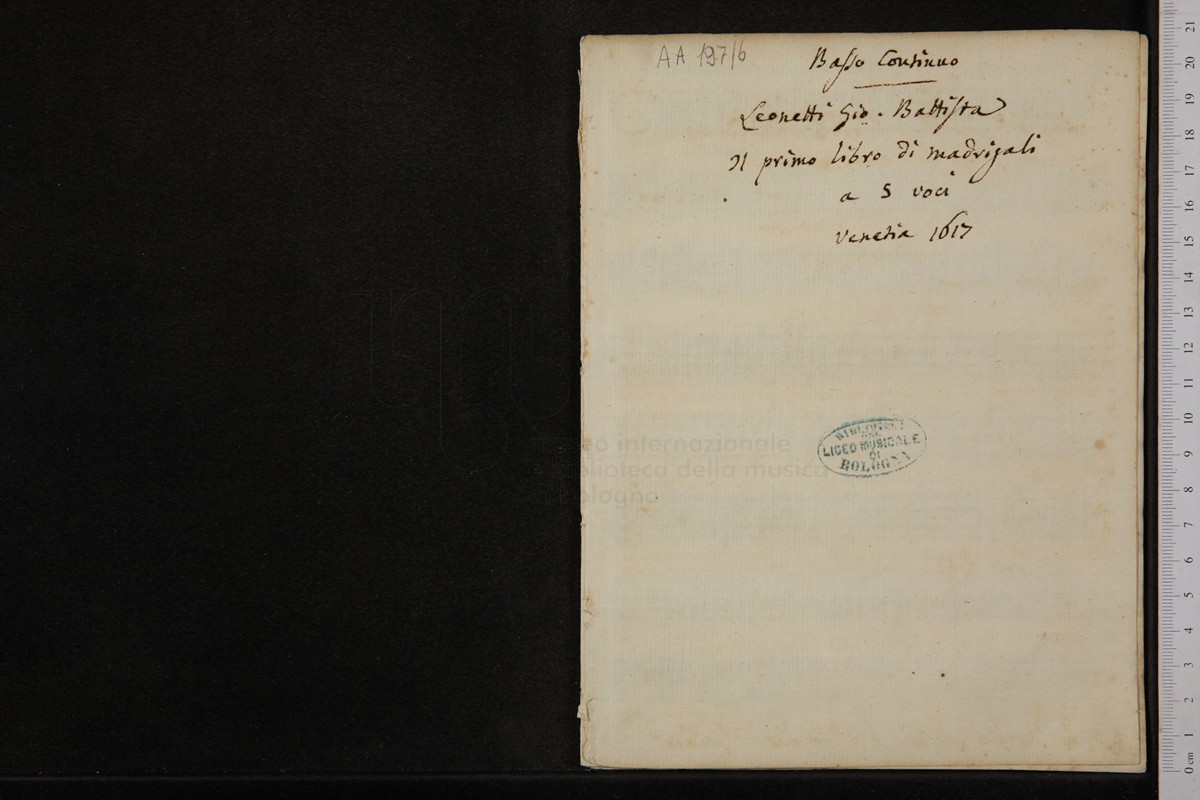 AA 197/6
Basso Continuo
Leonetti Gio. Battista
Il primo libro di madrigali
a 5 voci
Venetia 1617
BIBLIOTECA
DEL
LICEO MUSICALE
DI
BOLOGNA
museo internazionale
biblioteca della musica
bologna
21
20
19
18
17
16
15
14
13
12
11
10
9
8
7
6
5
4
3
2
1
0 cm